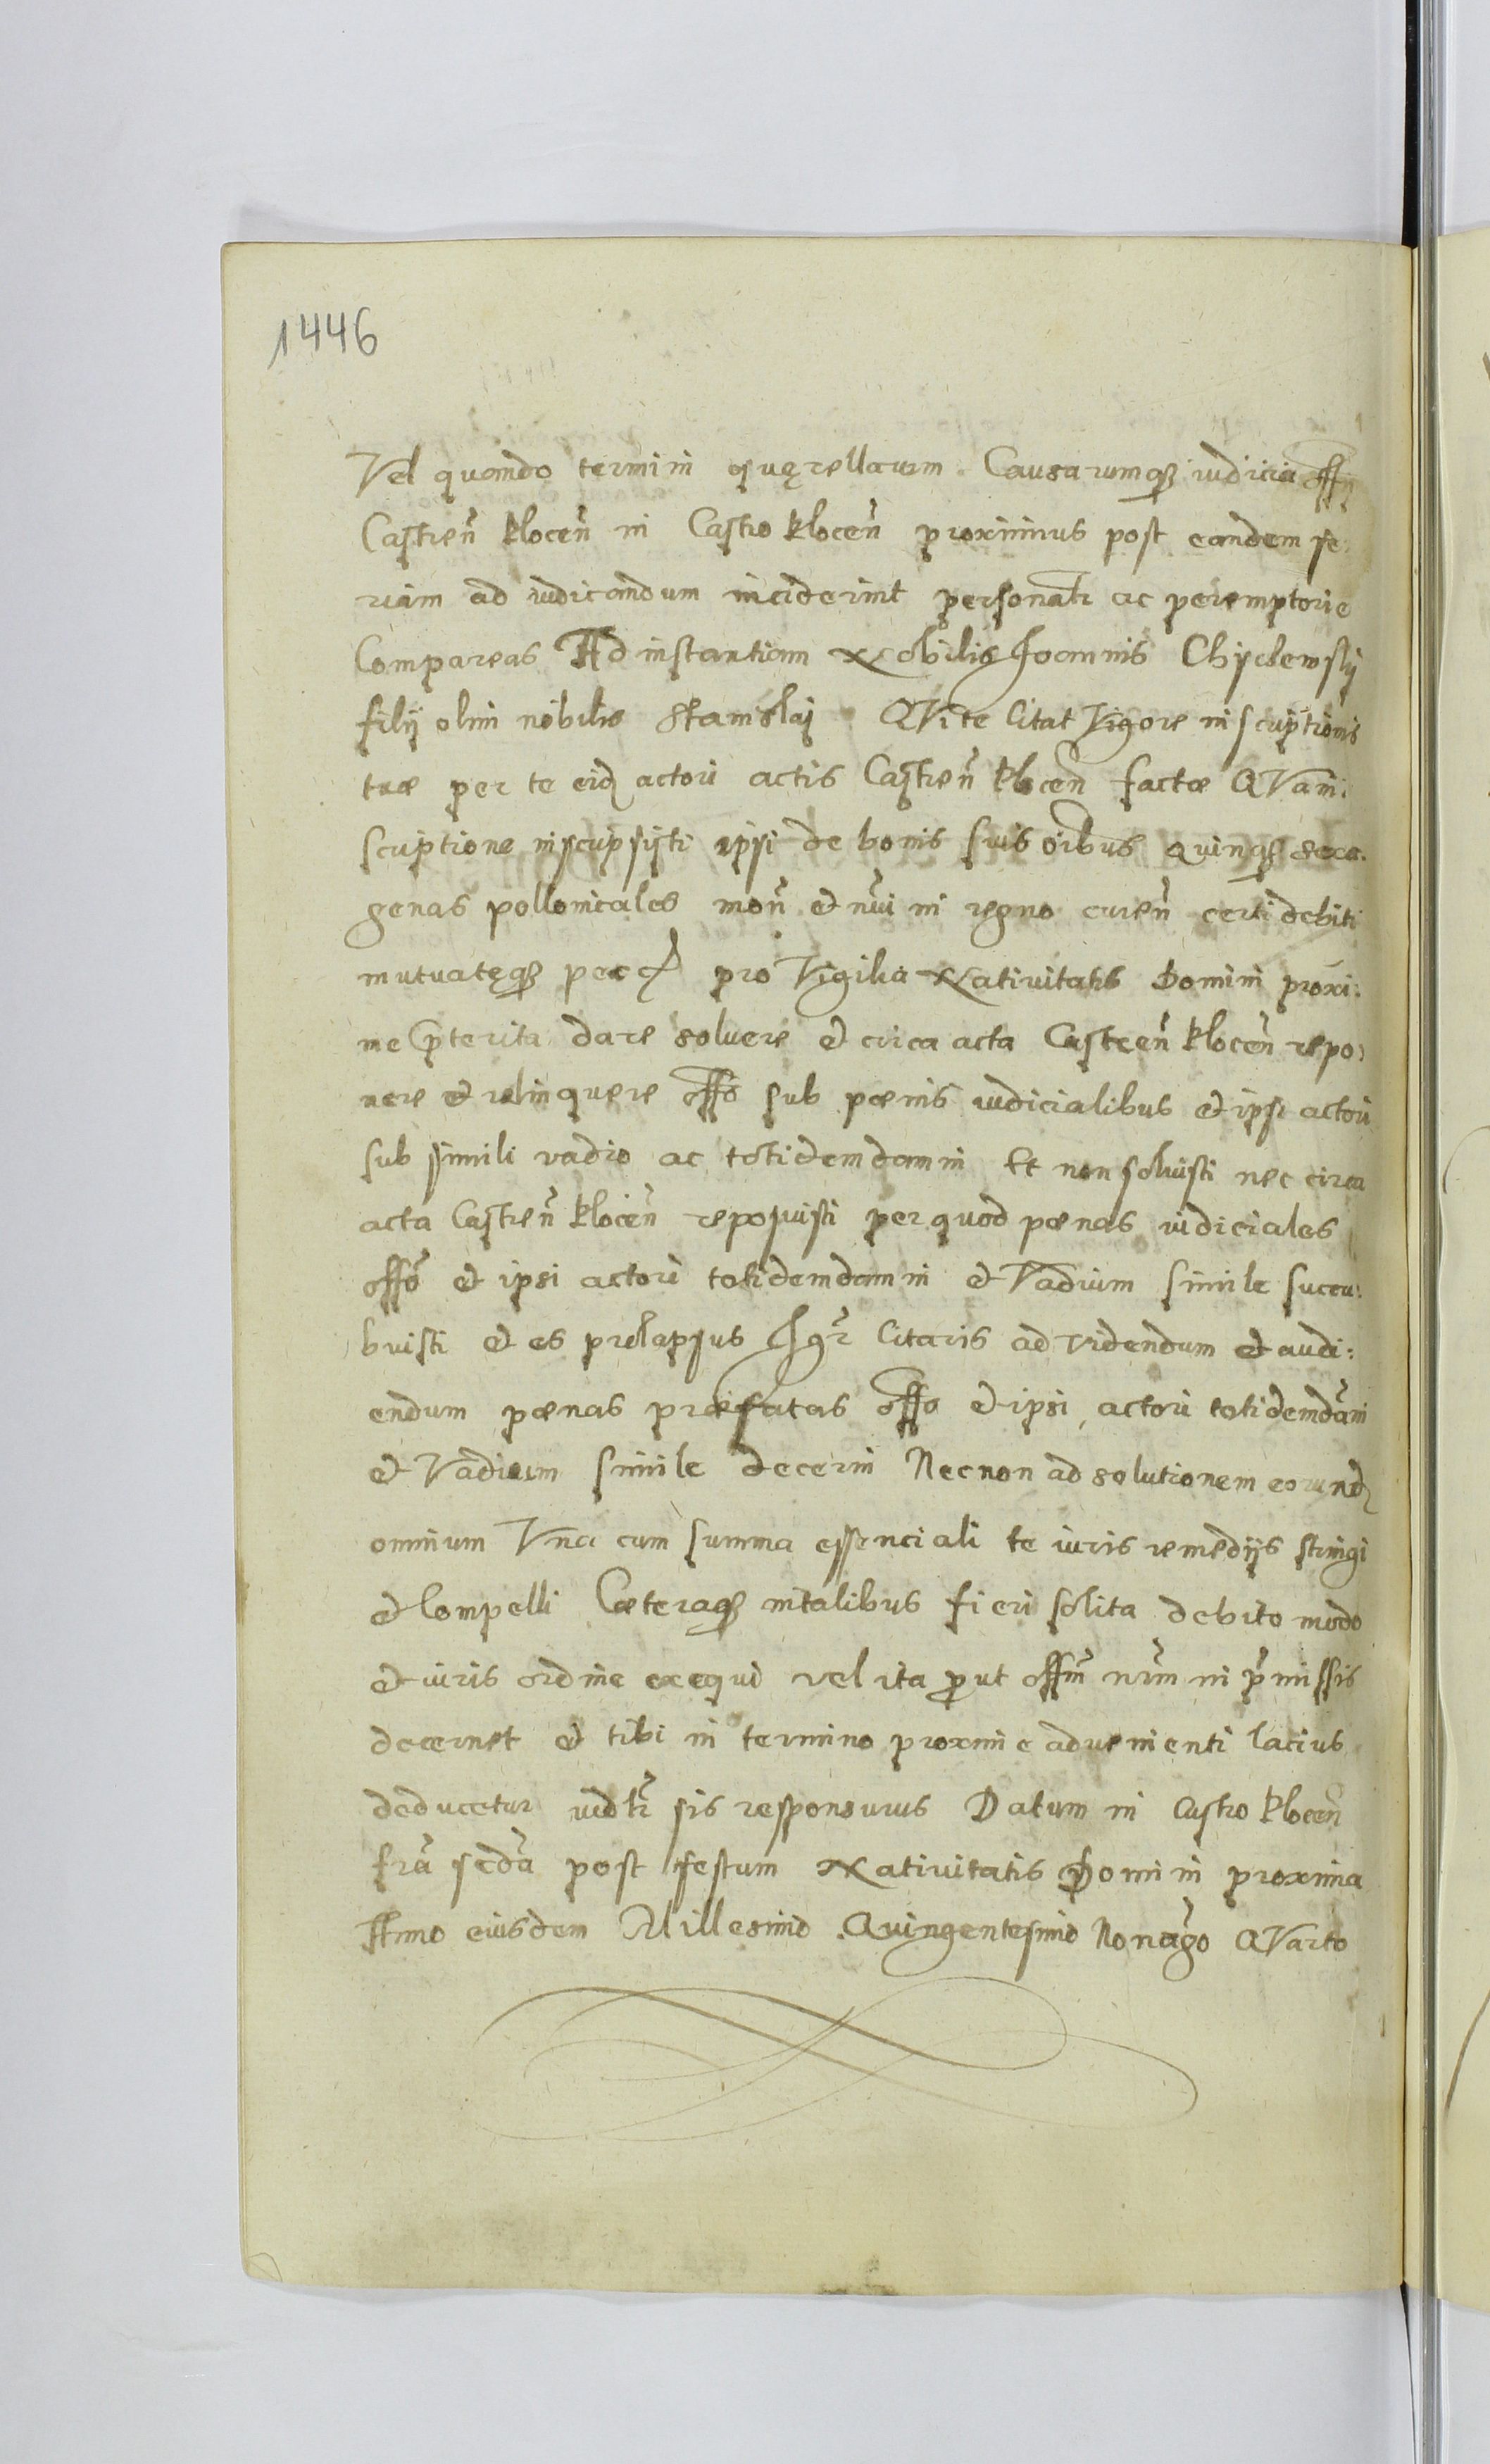 1446
Vel quando termini quęrellarum Causarumq iudicia offy
Castren̄ klocen̄ in Castro klocen̄ proximius post eandem fe:
riam ad iudicandum inciderint personalr ac peremptorie
Compareas Ad instantiam Nobilis Joannis Chyclewsky
filÿ olim nobilis Stanislaj QVi te Citat Vigore inscriptionis
tuæ per te eid actori actis Castren̄ klocen̄ factæ QVa in:
scriptione inscripsisti ipsi de bonis suis oibus quinq sexa:
genas pollonicales mon̄ et nūi in regno curen̄ certi debiti
mutuatęq pecć pro Vigilia Nativitatis Domini proxi:
me pterita dare solvere et circa acta Castren̄ klocen̄ repo:
nere et relinquere offo sub pœnis iudicialibus et ipsi actori
sub simili vadio ac totidem damni Et non solvisti nec circa
acta Castren̄ klocen̄ reposuisti per quod pœnas iudiciales
offo et ipsi actori totidem damni et Vadium simile succu:
buisti et es prolapsus Jgr Citaris ad videndum et audi:
endum pœnas præfatas offo et ipsi actori totidem dāni
et Vadium simile decerni Necnon ad solutionem eorund
omnium Vna cum summa essenciali te iuris remedÿs stringi
et Compelli Cæteraq in talibus fieri solita debito modo
et iuris ordine exequi vel ita put offm nrm in pmissis
decernet et tibi in termino proxime advenienti latius
deducetur iudlr sis responsurus Datum in Castro klocen̄
frā scdā post festum Nativitatis Domini proxima
Anno eiusdem Millesimo Quingentesimo Nonāgo QVarto